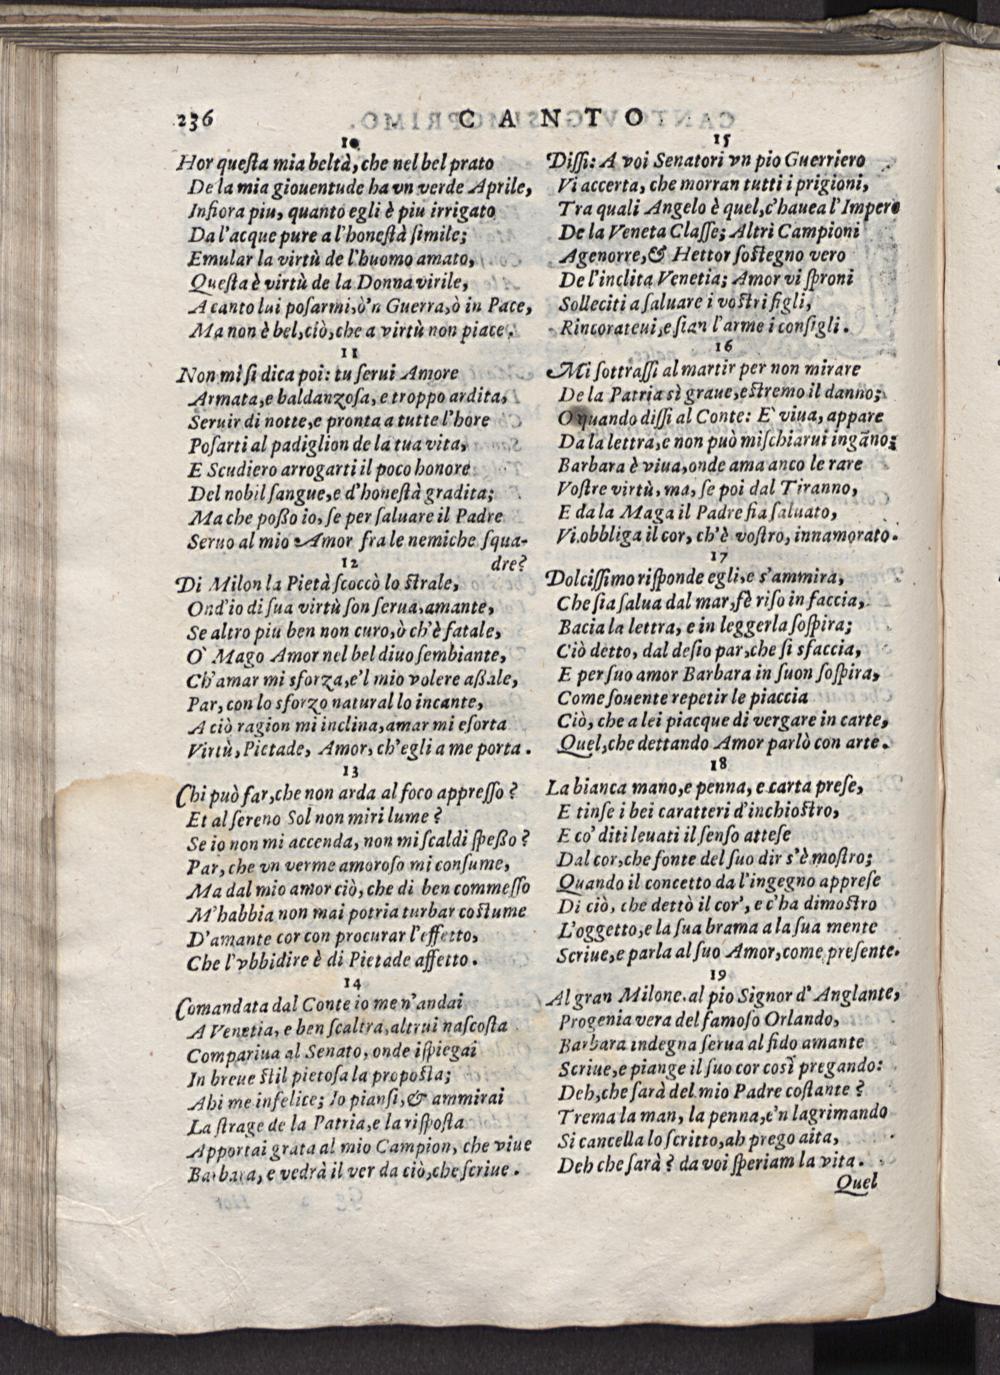 236 CANTO
10
Hor queſta mia beltà, che nel bel prato
De la mia giouentude ha vn verde Aprile,
Infiora piu, quanto egli è piu irrigato
Da l'acque pure a l'honeſtà ſimile;
Emular la virtù de l'huomo amato,
Queſta è virtù de la Donna virile,
A canto lui poſarmi, ò'n Guerra, ò in Pace,
Ma non è bel, ciò, che a virtù non piace.
11
Non mi ſi dica poi: tu ſerui Amore
Armata, e baldanzoſa, e troppo ardita,
Seruir di notte, e pronta a tutte l'hore
Poſarti al padiglion de la tua vita,
E Scudiero arrogarti il poco honore
Del nobil ſangue, e d'honeſtà gradita;
Ma che poßo io, ſe per ſaluare il Padre
Seruo al mio Amor fra le nemiche ſqua-
dre?
12
Di Milon la Pietà ſcoccò lo ſtrale,
Ond'io di ſua virtù ſon ſerua, amante,
Se altro piu ben non curo, ò ch'è fatale,
O' Mago Amor nel bel diuo ſembiante,
Ch'amar mi sforza, e'l mio volere aßale,
Par, con lo sforzo natural lo incante,
A ciò ragion mi inclina, amar mi eſorta
Virtù, Pietade, Amor, ch'egli a me porta.
13
Chi può far, che non arda al foco appreſſo?
Et al ſereno Sol non miri lume?
Se io non mi accenda, non mi ſcaldi ſpeßo?
Par, che vn verme amoroſo mi conſume,
Ma dal mio amor ciò, che di ben commeſſo
M'habbia non mai potria turbar coſtume
D'amante cor con procurar l'effetto,
Che l'vbbidire è di Pietade affetto.
14
Comandata dal Conte io me n'andai
A Venetia, e ben ſcaltra, altrui naſcoſta
Compariua al Senato, onde iſpiegai
In breue ſtil pietoſa la propoſta;
Ahi me infelice; Io pianſi, & ammirai
La ſtrage de la Patria, e la riſpoſta
Apportai grata al mio Campion, che viue
Barbara, e vedrà il ver da ciò, che ſcriue.
15
Diſſi: A voi Senatori vn pio Guerriero
Vi accerta, che morran tutti i prigioni,
Tra quali Angelo è quel, c'hauea l'Impero
De la Veneta Claſſe; Altri Campioni
Agenorre, & Hettor ſoſtegno vero
De l'inclita Venetia; Amor vi ſproni
Solleciti a ſaluare i voſtri figli,
Rincorateui, e ſian l'arme i conſigli.
16
Mi ſottraſſi al martir per non mirare
De la Patria sì graue, eſtremo il danno;
O quando diſſi al Conte: E' viua, appare
Da la lettra, e non può miſchiarui ingāno;
Barbara è viua, onde ama anco le rare
Voſtre virtù, ma, ſe poi dal Tiranno,
E da la Maga il Padre ſia ſaluato,
Vi obbliga il cor, ch'è voſtro, innamorato.
17
Dolciſſimo riſponde egli, e s'ammira,
Che ſia ſalua dal mar, fè riſo in faccia,
Bacia la lettra, e in leggerla ſoſpira;
Ciò detto, dal deſio par, che ſi sfaccia,
E per ſuo amor Barbara in ſuon ſoſpira,
Come ſouente repetir le piaccia
Ciò, che a lei piacque di vergare in carte,
Quel, che dettando Amor parlò con arte.
18
La bianca mano, e penna, e carta preſe,
E tinſe i bei caratteri d'inchioſtro,
E co' diti leuati il ſenſo atteſe
Dal cor, che fonte del ſuo dir s'è moſtro;
Quando il concetto da l'ingegno appreſe
Di ciò, che dettò il cor', e c'ha dimoſtro
L'oggetto, e la ſua brama a la ſua mente
Scriue, e parla al ſuo Amor, come preſente.
19
Al gran Milone. al pio Signor d'Anglante,
Progenia vera del famoſo Orlando,
Barbara indegna ſerua al fido amante
Scriue, e piange il ſuo cor così pregando:
Deh, che ſarà del mio Padre coſtante?
Trema la man, la penna, e'n lagrimando
Si cancella lo ſcritto, ah prego aita,
Deh che ſarà? da voi ſperiam la vita.
Quel